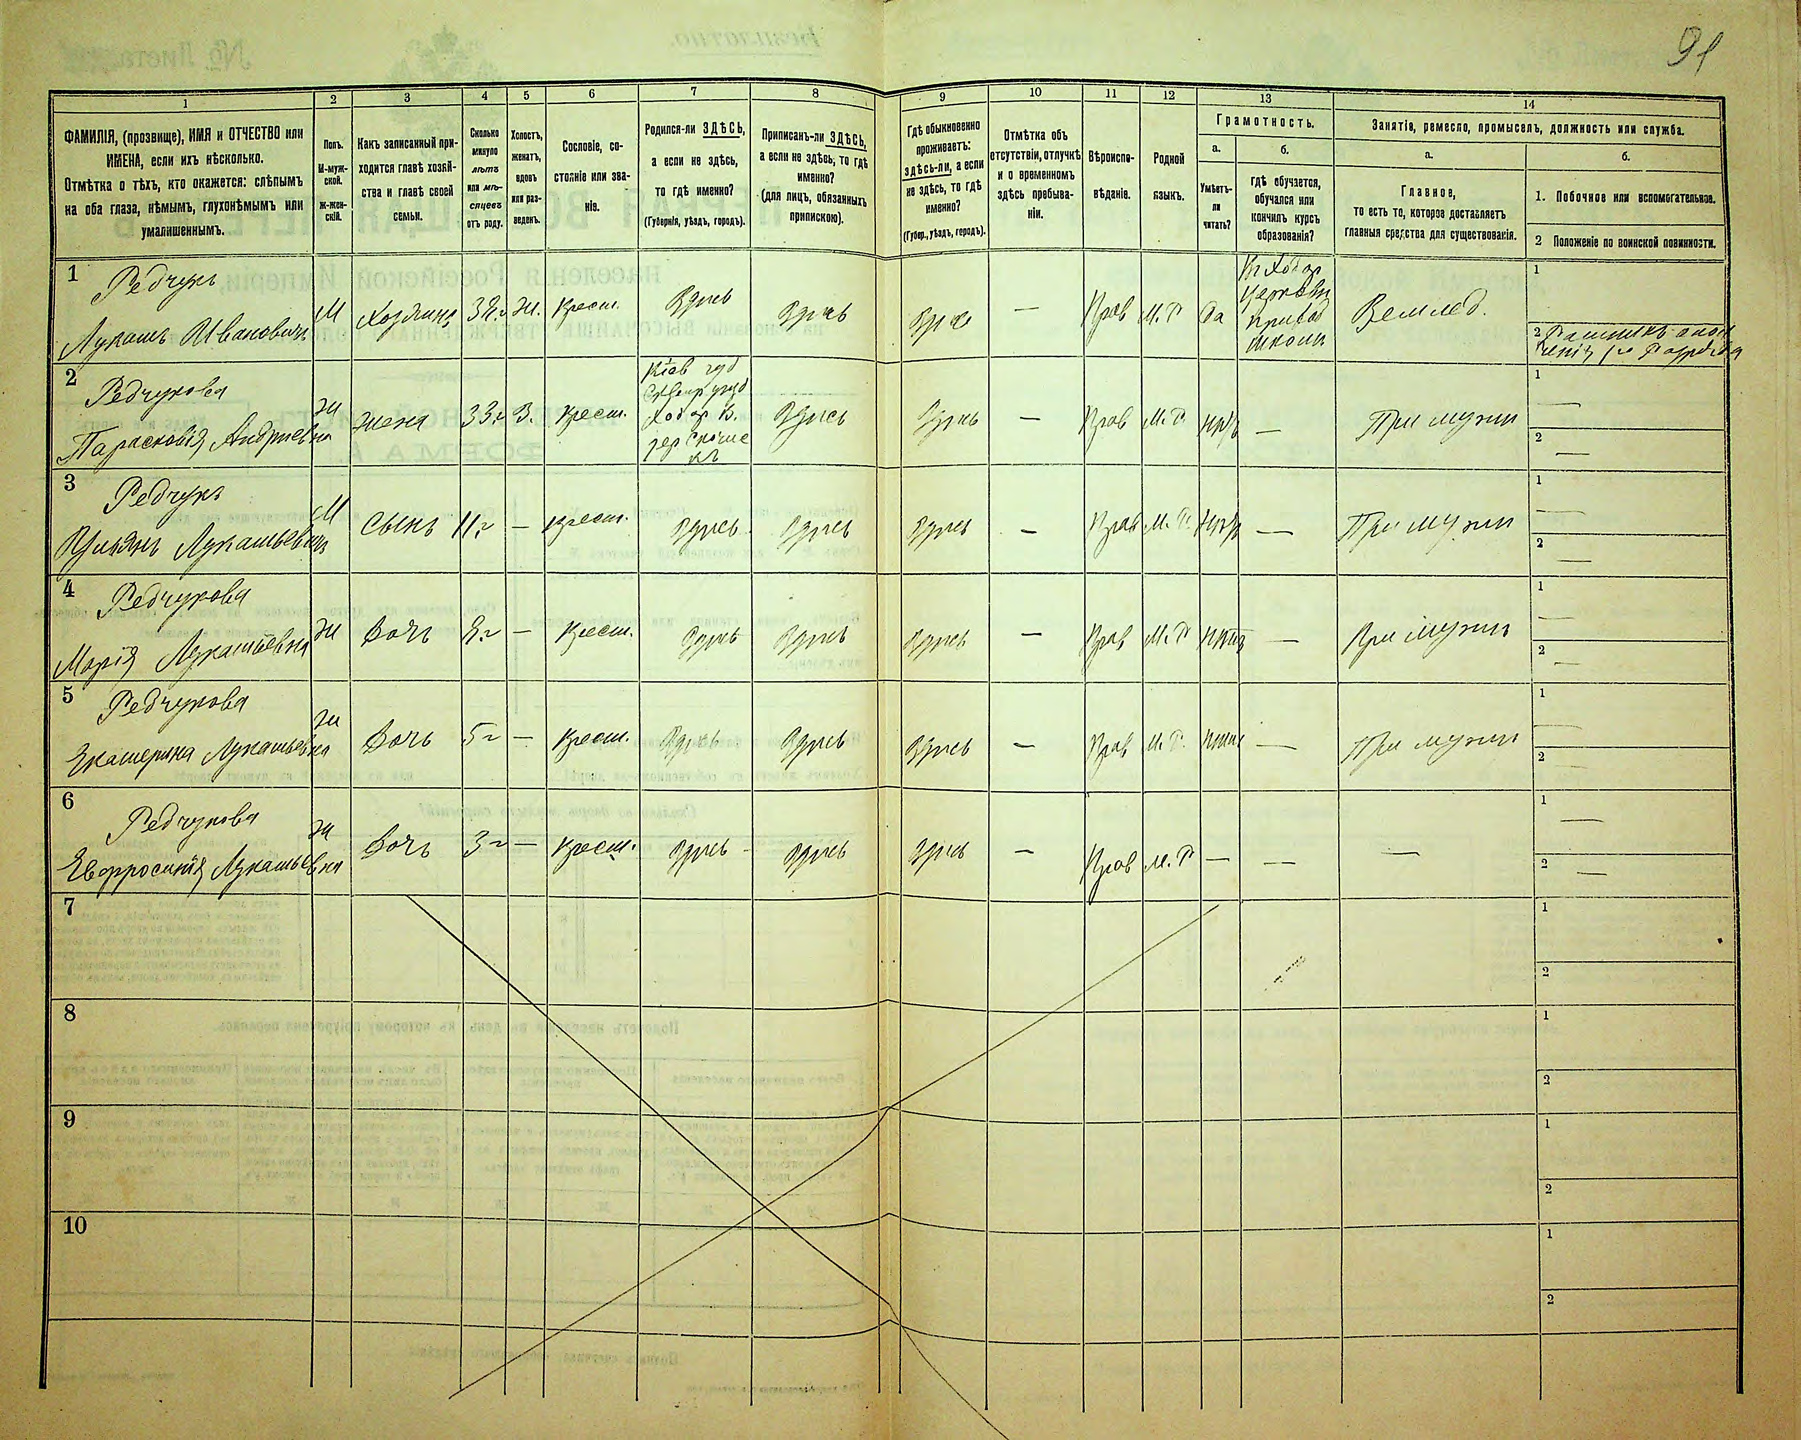 91
1 2 3 4 5 6 7 8 9 10 11 12 13 14
ФАМИЛІЯ, (прозвище), ИМЯ и ОТЧЕСТВО или
ИМЕНА, если ихъ нѣсколько.
Отмѣтка о тѣхъ, кто окажется: слѣпымъ
на оба глаза, нѣмымъ, глухонѣмымъ или
умалишеннымъ.
Полъ.
М-муж-
ской.
ж-жен-
скій.
Какъ записанный при-
ходится главѣ хозяй-
ства и главѣ своей
семьи.
Сколько
минуло
лѣтъ
или мѣ-
сяцевъ
отъ роду.
Холостъ,
женатъ,
вдовъ
или раз-
веденъ.
Сословіе, со-
стояніе или зва-
ніе.
Родился-ли ЗДѢСЬ,
а если не здѣсь,
то гдѣ именно?
(Губернія, уѣздъ, городъ).
Приписанъ-ли ЗДѢСЬ,
а если не здѣсь, то гдѣ
именно?
(для лицъ, обязанныхъ
припискою).
Гдѣ обыкновенно
проживаетъ:
здѣсь-ли, а если
не здѣсь, то гдѣ
именно?
(Губер., уѣздъ, городъ).
Отмѣтка объ
отсутствіи, отлучкѣ
и о временномъ
здѣсь пребыва-
ніи.
Вѣроиспо-
вѣданіе.
Родной
языкъ.
Грамотность.
а.
Умѣетъ-
ли
читать?
б.
гдѣ обучается,
обучался или
кончилъ курсъ
образованія?
Занятіе, ремесло, промыселъ, должность или служба.
а.
Главное,
то есть то, которое доставляетъ
главныя средства для существованія.
б.
1. Побочное или вспомогательное.
2 Положеніе по воинской повинности.
1
Редчукъ
Лукашъ Ивановичъ
М Хозяинъ 38 г Ж. Крест. Здѣсь Здѣсь Здѣсь — Прав М. Р да
церковн
приход
школы
Землед.
1
2
2
Редчукова
Парасковія Андреевна
ж жена 33 г З. Крест.
Кіев губ
Сквир уѣзд
Ходор В.
дер
Здѣсь Здѣсь — Прав М. Р. — При мужи
1 —
2 —
3
Редчукъ
Ульянъ Лукашьев
М Сынъ 11 г — Крест. Здѣсь Здѣсь Здѣсь — Прав М. Р. — При мужи
1 —
2 —
4
Редчукова
Марія Лукашьевна
ж Дочь 8 г — Крест. Здѣсь Здѣсь Здѣсь — Прав М. Р — При мужи
1 —
2 —
5
Редчукова
Екатерина Лукашьевна
ж Дочь 5 г — Крест. Здѣсь Здѣсь Здѣсь — Прав М. Р. — При мужи
1 —
2 —
6
Редчукова
Евфросинія Лукашьевна
ж Дочь 3 г — Крест. Здѣсь Здѣсь Здѣсь — Прав М. Р — — —
1 —
2 —
7
1
2
8
1
2
9
1
2
10
1
2